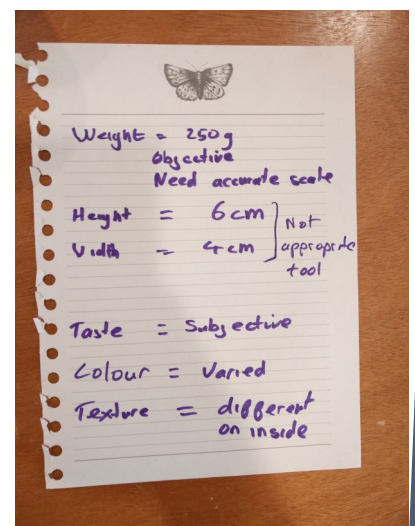 Weight = 250g
Objective
Need accurate scale
Height = 6cm
Width = 4cm
Not
appropriate
tool
Taste = Subjective
Colour = Varied
Texture = different
on inside